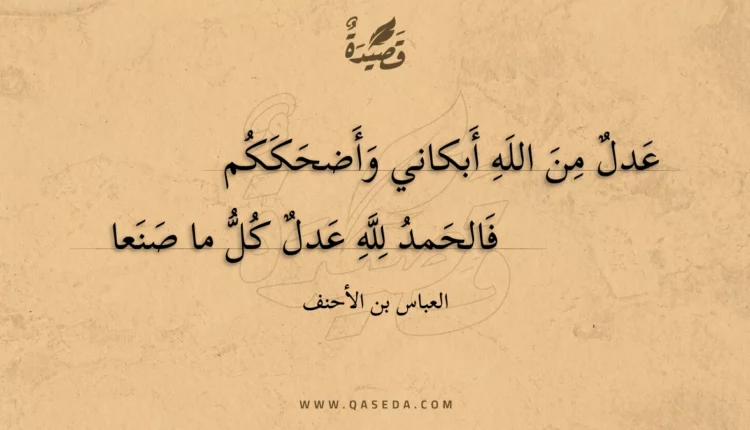 قَصِيدَةٌ
عَدلٌ مِنَ اللَهِ أَبكاني وَأَضحَكَكُم
فَالحَمدُ لِلَّهِ عَدلٌ كُلُّ ما صَنَعا
العباس بن الأحنف
WWW.QASEDA.COM